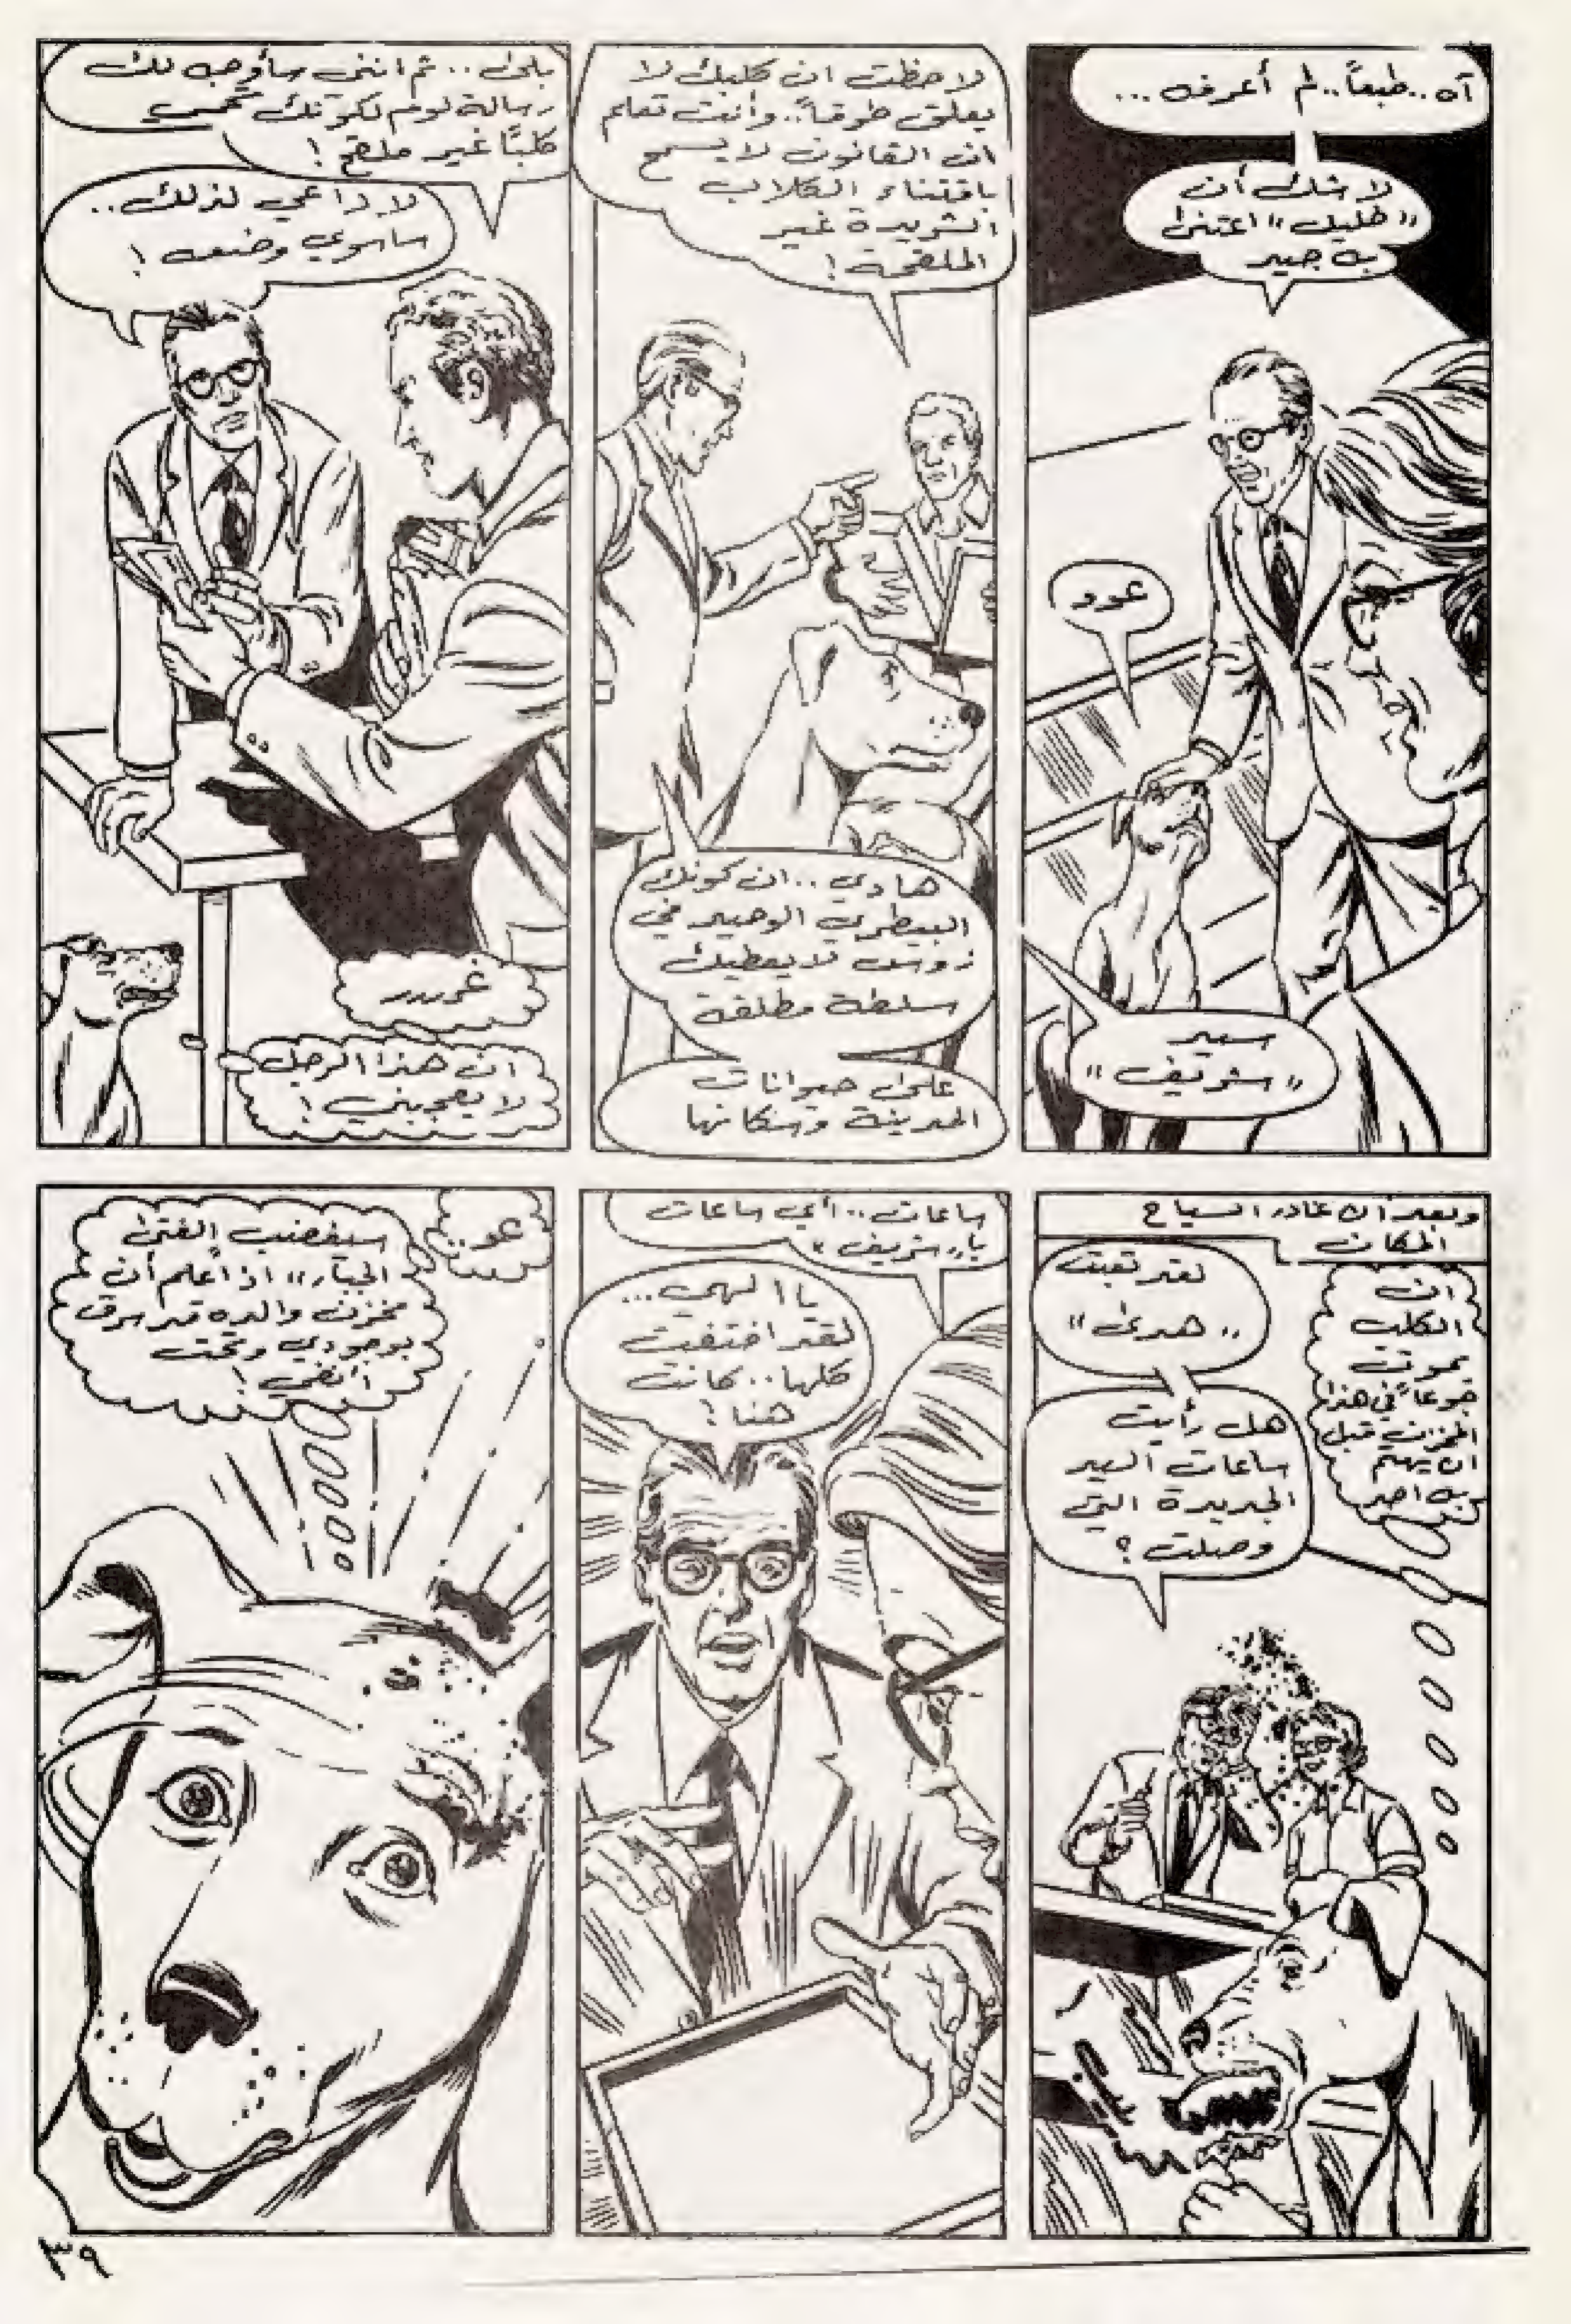 آه.. طبعاً.. لم أعرفه...
لا شك أن
"خليل" اعتنى
به جيد
عوو
سيد
"شريف"
لاحظت ان كلبك لا
يعلق طوقاً.. وأنت تعلم
ان القانون لا يسمح
باقتناء الكلاب
الشريدة غير
الملقحة!
هادي.. ان كونك
البيطري الوحيد في
زوس لا يعطيك
سلطة مطلقة
على حيوانات
المدينة وسكانها
بلى.. ثم انني سأوجه لك
رسالة لوم لكونك تحمي
كلباً غير ملقح!
لا داعي لذلك..
سأسوي وضعه!
غرررر
ان هذا الرجل
لا يعجبني!
وبعد ان غادر السياح
المكان
ان
الكلب
يموت
جوعاً في هذا
المخزن قبل
ان يهتم
به احد
لقد تعبت
"هدى"
هل رأيت
ساعات اليد
الجديدة التي
وصلت؟
ساعات.. أي ساعات
يا "شريف"؟
يا الهي...
لقد اختفت
كلها.. كانت
هنا!
عوو..
سيغضب "الفتى
الجبار" اذا علم أن
مخزن والده قد سرق
بوجودي وتحت
أنفي!
٣٩